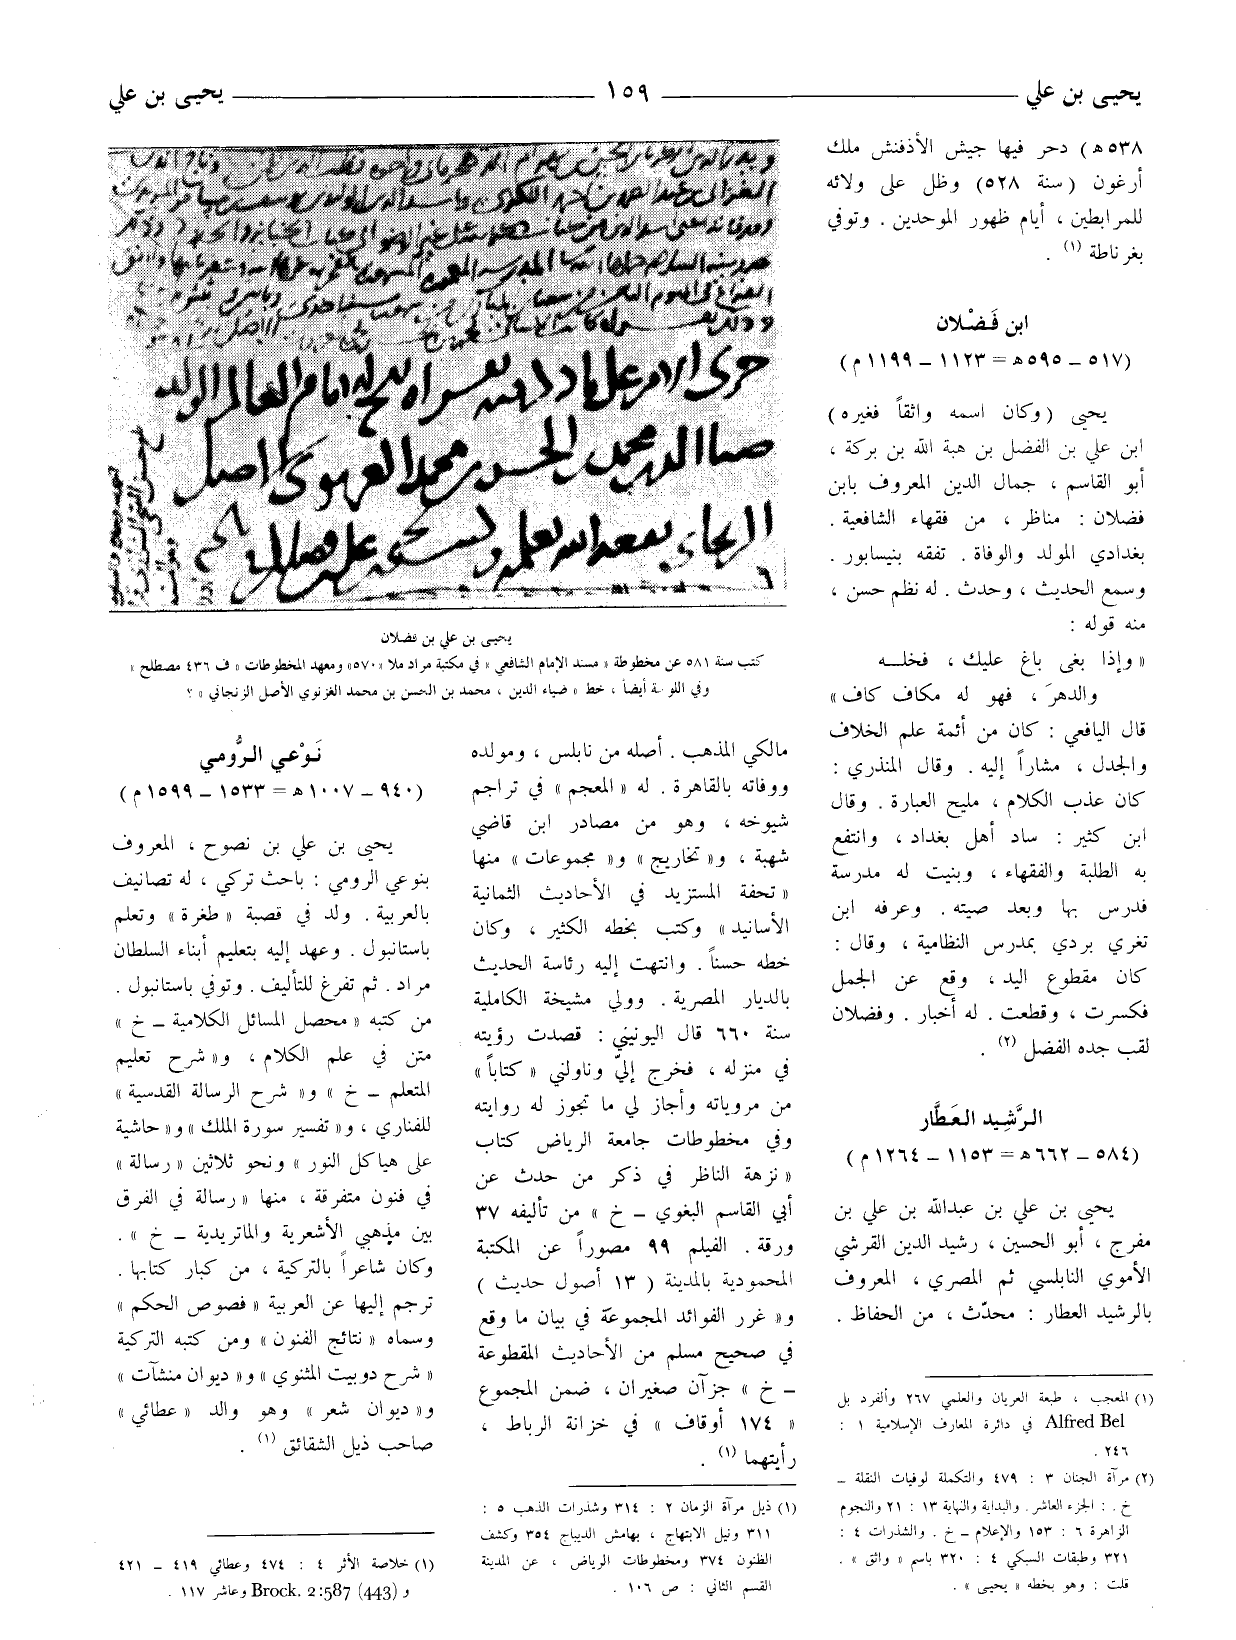 يحيى بن علي ١٥٩ يحيى بن علي
٥٣٨ه) دحر فيها جيش الأذفنش ملك
أرغون (سنة ٥٢٨) وظل على ولائه
للمرابطين ، أيام ظهور الموحدين . وتوفي
بغرناطة (١) .
ابن فَضْلان
(٥١٧ – ٥٩٥ه = ١١٢٣ – ١١٩٩ م)
يحيى (وكان اسمه واثقاً فغيره)
ابن علي بن الفضل بن هبة الله بن بركة ،
أبو القاسم ، جمال الدين المعروف بابن
فضلان : مناظر ، من فقهاء الشافعية .
بغدادي المولد والوفاة . تفقه بنيسابور .
وسمع الحديث ، وحدث . له نظم حسن ،
منه قوله :
« وإذا بغى باغ عليك ، فخلـه
والدهرَ ، فهو له مكاف كاف »
قال اليافعي : كان من أئمة علم الخلاف
والجدل ، مشاراً إليه . وقال المنذري :
كان عذب الكلام ، مليح العبارة . وقال
ابن كثير : ساد أهل بغداد ، وانتفع
به الطلبة والفقهاء ، وبنيت له مدرسة
فدرس بها وبعد صيته . وعرفه ابن
تغري بردي بمدرس النظامية ، وقال :
كان مقطوع اليد ، وقع عن الجمل
فكسرت ، وقطعت . له أخبار . وفضلان
لقب جده الفضل (٢) .
الرَّشِيد العَطَّار
(٥٨٤ – ٦٦٢ه = ١١٥٣ – ١٢٦٤ م)
يحيى بن علي بن عبدالله بن علي بن
مفرج ، أبو الحسين ، رشيد الدين القرشي
الأموي النابلسي ثم المصري ، المعروف
بالرشيد العطار : محدّث ، من الحفاظ .
(١) المعجب ، طبعة العريان والعلمي ٢٦٧ وألفرد بل
Alfred Bel في دائرة المعارف الإسلامية ١ :
٢٤٦ .
(٢) مرآة الجنان ٣ : ٤٧٩ والتكملة لوفيات النقلة –
خ . : الجزء العاشر . والبداية والنهاية ١٣ : ٢١ والنجوم
الزاهرة ٦ : ١٥٣ والإعلام – خ . والشذرات ٤ :
٣٢١ وطبقات السبكي ٤ : ٣٢٠ باسم « واثق » .
قلت : وهو بخطه « يحيى » .
يحيى بن علي بن فضلان
كتب سنة ٥٨١ عن مخطوطة « مسند الإمام الشافعي » في مكتبة مراد ملا «٥٧٠» ومعهد المخطوطات « ف ٤٣٦ مصطلح »
وفي اللوحة أيضاً ، خط « ضياء الدين ، محمد بن الحسن بن محمد الغزنوي الأصل الزنجاني » ؟
مالكي المذهب . أصله من نابلس ، ومولده
ووفاته بالقاهرة . له « المعجم » في تراجم
شيوخه ، وهو من مصادر ابن قاضي
شهبة ، و« تخاريج » و« مجموعات » منها
« تحفة المستزيد في الأحاديث الثمانية
الأسانيد » وكتب بخطه الكثير ، وكان
خطه حسناً . وانتهت إليه رئاسة الحديث
بالديار المصرية . وولي مشيخة الكاملية
سنة ٦٦٠ قال اليونيني : قصدت رؤيته
في منزله ، فخرج إليّ وناولني « كتاباً »
من مروياته وأجاز لي ما تجوز له روايته
وفي مخطوطات جامعة الرياض كتاب
« نزهة الناظر في ذكر من حدث عن
أبي القاسم البغوي – خ » من تأليفه ٣٧
ورقة . الفيلم ٩٩ مصوراً عن المكتبة
المحمودية بالمدينة ( ١٣ أصول حديث )
و« غرر الفوائد المجموعة في بيان ما وقع
في صحيح مسلم من الأحاديث المقطوعة
– خ » جزآن صغيران ، ضمن المجموع
« ١٧٤ أوقاف » في خزانة الرباط ،
رأيتهما (١) .
(١) ذيل مرآة الزمان ٢ : ٣١٤ وشذرات الذهب ٥ :
٣١١ ونيل الابتهاج ، بهامش الديباج ٣٥٤ وكشف
الظنون ٣٧٤ ومخطوطات الرياض ، عن المدينة
القسم الثاني : ص ١٠٦ .
نَوْعي الرُّومي
(٩٤٠ – ١٠٠٧ ه = ١٥٣٣ – ١٥٩٩ م)
يحيى بن علي بن نصوح ، المعروف
بنوعي الرومي : باحث تركي ، له تصانيف
بالعربية . ولد في قصبة « طغرة » وتعلم
باستانبول . وعهد إليه بتعليم أبناء السلطان
مراد . ثم تفرغ للتأليف . وتوفي باستانبول .
من كتبه « محصل المسائل الكلامية – خ »
متن في علم الكلام ، و« شرح تعليم
المتعلم – خ » و« شرح الرسالة القدسية »
للفناري ، و« تفسير سورة الملك » و« حاشية
على هياكل النور » ونحو ثلاثين « رسالة »
في فنون متفرقة ، منها « رسالة في الفرق
بين مذهبي الأشعرية والماتريدية – خ » .
وكان شاعراً بالتركية ، من كبار كتابها .
ترجم إليها عن العربية « فصوص الحكم »
وسماه « نتائج الفنون » ومن كتبه التركية
« شرح دوبيت المثنوي » و« ديوان منشآت »
و« ديوان شعر » وهو والد « عطائي »
صاحب ذيل الشقائق (١) .
(١) خلاصة الأثر ٤ : ٤٧٤ وعطائي ٤١٩ – ٤٢١
و Brock. 2:587 (443) وعاشر ١١٧ .